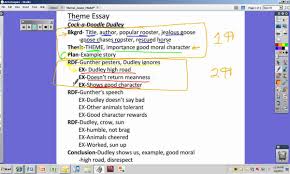 Theme Essay
Cock-a-Doodle Dudley
Bkgrd- Title, author, popular rooster, jealous goose
-goose chases rooster, rescued horse
Thes- THEME, importance good moral character
Plan- Example story
RDF- Gunther pesters, Dudley ignores
EX- Dudley high road
EX- Doesn't return meanness
EX- Shows good character
RDF- Gunther's speech
EX- Dudley doesn't say bad
EX- Other animals tolerate
EX- Dudley character rewards
RDF- Dudley, crow, sun
EX- Humble, not brag
EX- Animals cheered
EX- Worked, sun up
Conclusion- Dudley shows us, example, good moral
-high road, disrespect
1¶
2¶